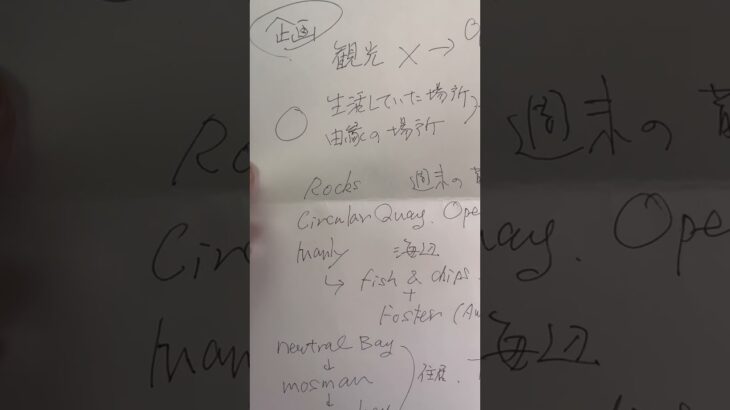 企画
観光 × →
○ 生活していた場所
由縁の場所
Rocks 週末の
Circular Quay. Ope
manly 海辺
↳ fish & chips
+
Foster (Au
neutral Bay
↓
mosman 住居.
↓